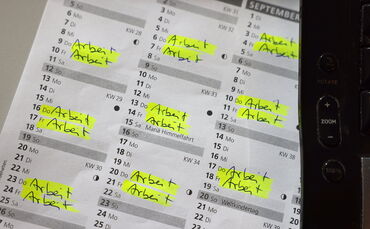 5 So
6 Mo KW 28
7 Di
8 Mi
9 Do Arbeit
10 Fr Arbeit
11 Sa
12 So
13 Mo KW 29
14 Di
15 Mi
16 Do Arbeit
17 Fr Arbeit
18 Sa
19 So
20 Mo KW 30
21 Di
22 Mi
23 Do Arbeit
24 Fr Arbeit
2 So
3 Mo KW 32
4 Di
5 Mi
6 Do Arbeit
7 Fr Arbeit
8 Sa
9 So
10 Mo KW 33
11 Di
12 Mi
13 Do Arbeit
14 Fr Arbeit
15 Sa Mariä Himmelfahrt
16 So
17 Mo KW 34
18 Di
19 Mi
20 Do Arbeit
21 Fr Arbeit
22 Sa
23 So
24 Mo
SEPTEMBER
1 Di
2 Mi
3 Do Arbeit
4 Fr Arbeit
5 Sa
6 So
7 Mo KW 37
8 Di
9 Mi
10 Do Arbeit
11 Fr Arbeit
12 Sa
13 So
14 Mo KW 38
15 Di
16 Mi
17 Do Arbeit
18 Fr Arbeit
19 Sa
20 So Weltkindertag
21 Mo
22 Di
ZOOM